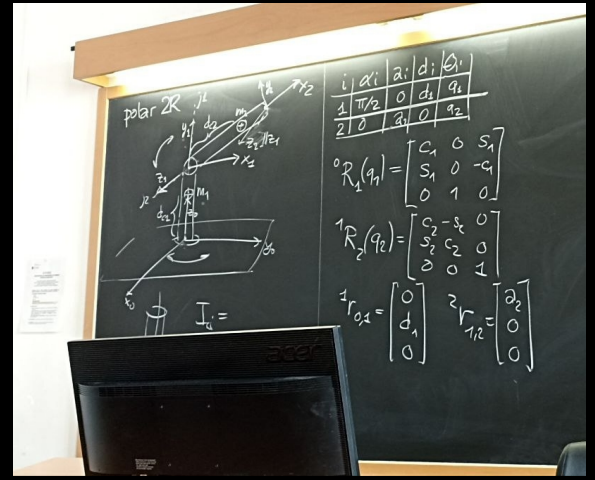 polar 2R
j1
y1
x2
m2
dc2
z2 // z1
x1
z1
j2
m1
dc1
z0
y0
x0
I i =
i | αi | ai | di | θi
1 | π/2 | 0 | d1 | q1
2 | 0 | a2 | 0 | q2
⁰R₁(q₁) = [ c₁ 0 s₁
s₁ 0 -c₁
0 1 0 ]
¹R₂(q₂) = [ c₂ -s₂ 0
s₂ c₂ 0
0 0 1 ]
¹r₀,₁ = [ 0
d₁
0 ]
²r₁,₂ = [ a₂
0
0 ]
acer